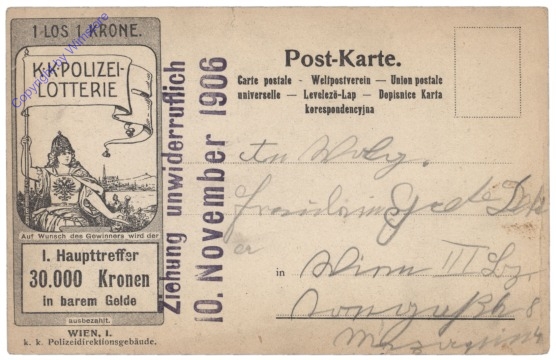 1 LOS 1 KRONE.
K.K. POLIZEI-
LOTTERIE
Auf Wunsch des Gewinners wird der
I. Haupttreffer
30.000 Kronen
in barem Gelde
ausbezahlt.
WIEN, I.
k. k. Polizeidirektionsgebäude.
Copyright by Winstore
Ziehung unwiderruflich
10. November 1906
Post-Karte.
Carte postale - Weltpostverein — Union postale
universelle — Levelező-Lap — Dopisnice Karta
korespondencyjna
Fräulein
in Wien III
8